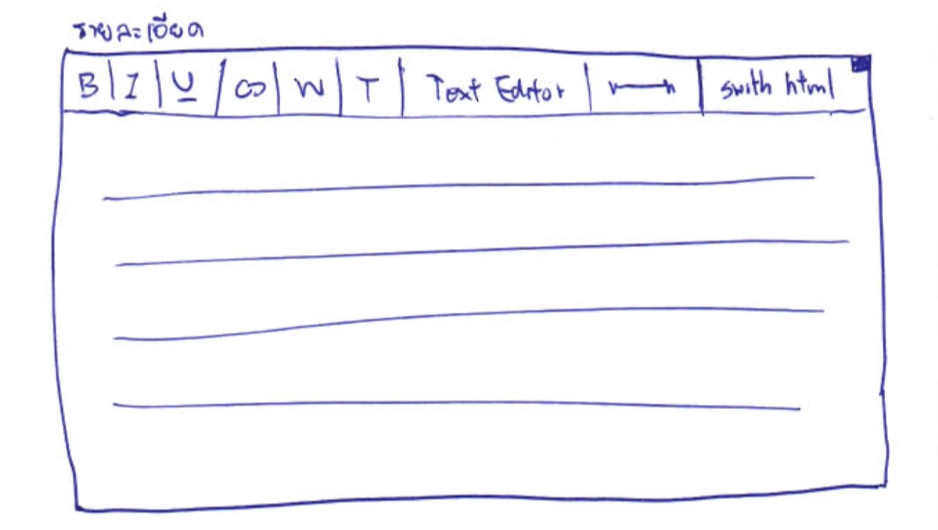 รายละเอียด
B I U ∞ W T Text Editor swith html